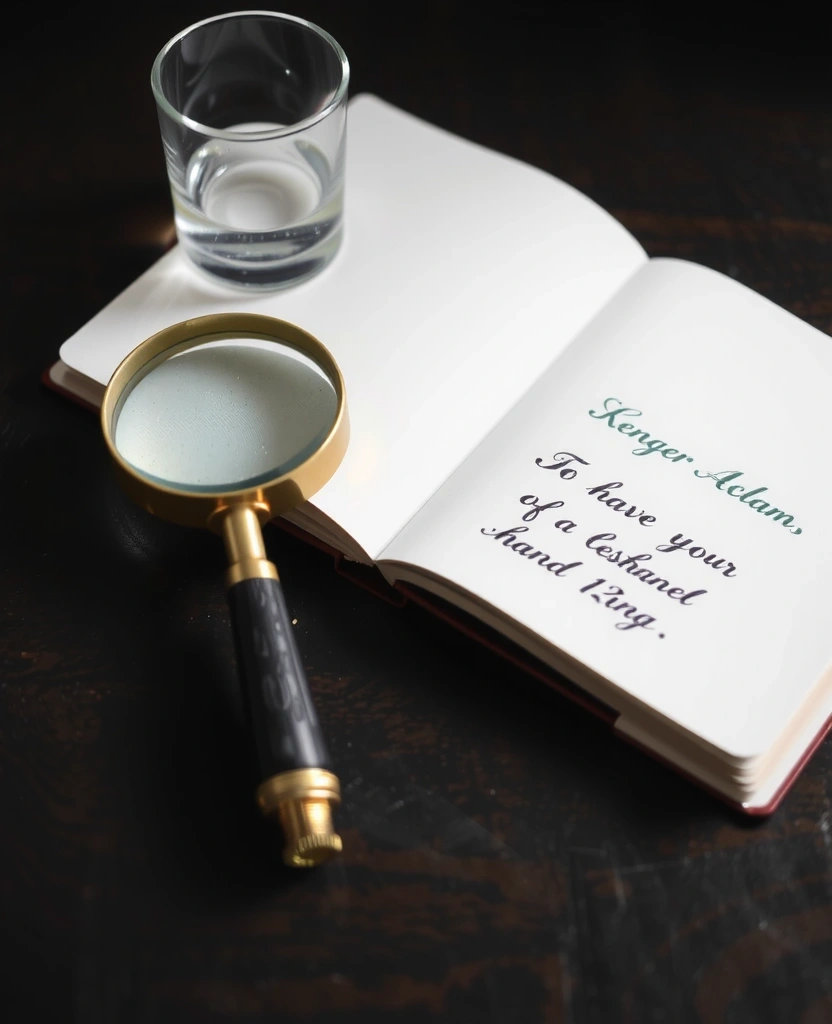 Kenger Aclam,
To have your
of a leshanel
hand 12ing.